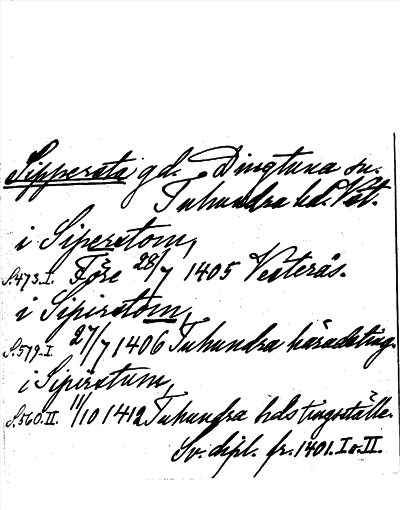 Sippersta gd. Dingtuna sn.
Tuhundra hd. Vst.
i Siperstom,
S.473.I. Före 28/7 1405 Vesterås.
i Sipirstom,
S.579.I 27/7 1406 Tuhundra häradsting.
i Sipirstum,
S.560.II. 11/10 1412 Tuhundra hds tingsställe.
Sv. dipl. fr. 1401. I o. II.